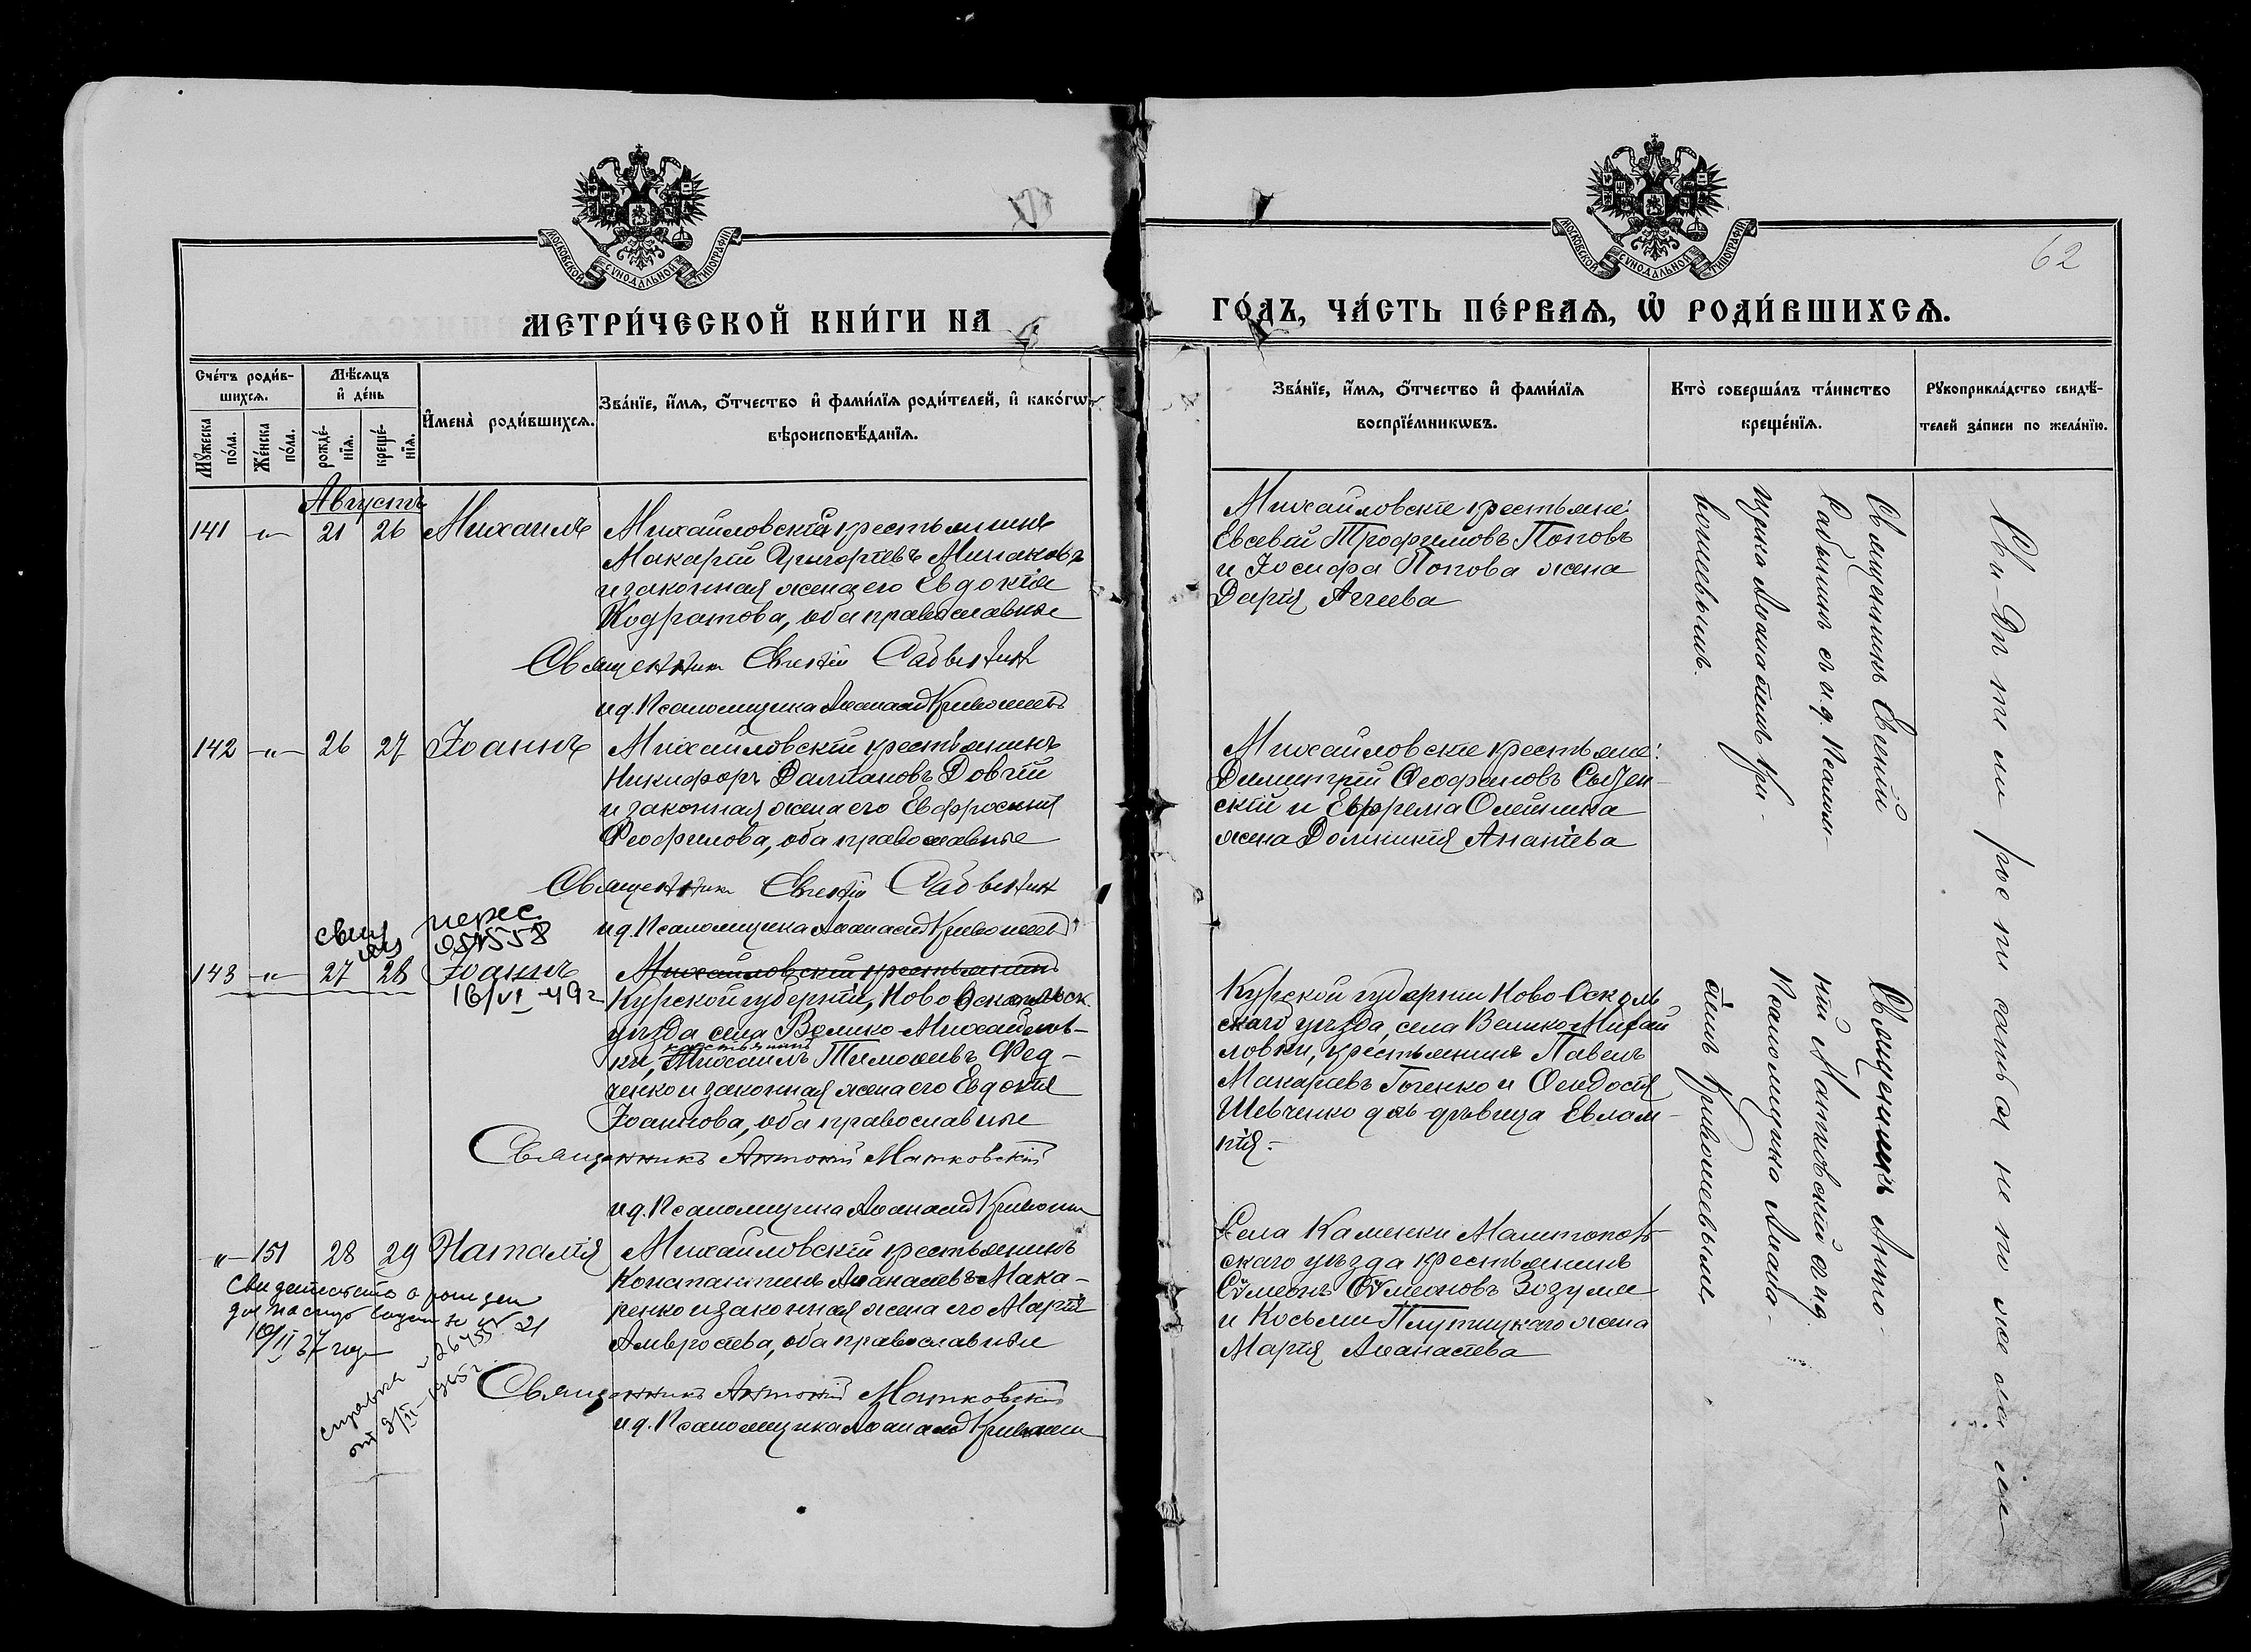 МОСКОВСКОЙ СѴНОДАЛЬНОЙ ТИПОГРАФІИ
МОСКОВСКОЙ СѴНОДАЛЬНОЙ ТИПОГРАФІИ
62
МЕТРИ́ЧЕСКОЙ КНИ́ГИ НА
ГО́ДЪ, ЧА́СТЬ ПЕ́РВАѦ, Ѡ҆ РОДИ́ВШИХСѦ.
Сче́тъ роди́в-
шихсѧ.
Мꙋ́жеска
по́ла.
Же́нска
по́ла.
Мѣ́сѧцъ
и҆ де́нь
рожде́-
нїѧ.
креще́-
нїѧ.
И҆мена̀ роди́вшихсѧ.
Зва́нїе, и҆́мѧ, ѻ҆́тчество и҆ фами́лїѧ роди́телей, и҆ како́гѡ
вѣроисповѣ́данїѧ.
Зва́нїе, и҆́мѧ, ѻ҆́тчество и҆ фами́лїѧ
воспрїе́мникѡвъ.
Кто̀ соверша́лъ та́инство
креще́нїѧ.
Рꙋкоприкла́дство свидѣ́-
телей за́писи по жела́нїю.
Августъ
141 -„- 21 26 Михаилъ
Михайловскій крестьянинъ
Макарій Григоріевъ Минаковъ
и законная жена его Евдокія
Кодратова, оба православные
Священник Евгеній Савынин
и.д. Псаломщика Аѳанасій Кривошеевъ
Михайловскіе крестьяне:
Евсевій Трофимовъ Поповъ
и Іосифа Попова жена
Дарія Аггеева
Священникъ Евгеній
съ и.д. Псалом-
щика Аѳанасіемъ Кри-
вошеевымъ.
142 -„- 26 27 Іоаннъ
Михайловскій крестьянинъ
Никифоръ Далматовъ Довгій
и законная жена его Евфросинія
Феофилова, оба православные
Священник Евгеній Савынин
и.д. Псаломщика Аѳанасій Кривошеевъ
Михайловскіе крестьяне:
Димитрій Ѳеофановъ
скій и Ефрема Олейника
жена Домникія Ананіева
143 -„- 27 28 Іоаннъ
16/VI-49г
Михайловскій крестьянинъ
Курской губерніи, Ново Оскольск.
уѣзда села Велико-Михайлов-
крестьянинъ
ки, Михаилъ Тимоѳеевъ Фед-
ченко и законная жена его Евдокія
Іоаннова, оба православные
Священникъ Антоній Матковскій
и.д. Псаломщика Аѳанасій Кривошеевъ
Курской губерніи Ново Осколь
скаго уѣзда, села Велико Михай
ловки, крестьянинъ Павелъ
Макаріевъ и Ѳеодосія
Шевченко дѣвица Евлам-
пія.-
Священникъ Анто-
ній Матковскій съ и.д.
Псаломщика Аѳана-
сіемъ Кривошеевымъ.
-„- 151 28 29 Наталія
Михайловскій крестьянинъ
Константинъ Аѳанасіевъ Мака-
ренко и законная жена его Марія
Амвросіева, оба православные
Священникъ Антоній Матковскій
и.д. Псаломщика Аѳанасій Кривошеевъ
Села Каменки Мелитополь-
скаго уѣзда крестьянинъ
Сѵмеонъ Сѵмеоновъ Зозуля
и Косьмы Плутицкаго жена
Марія Аѳанасіева
Свидетельство о рожден
справка